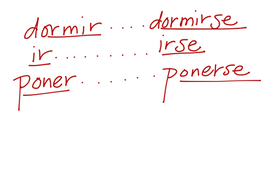 dormir .... dormirse
ir ......... irse
poner ...... ponerse